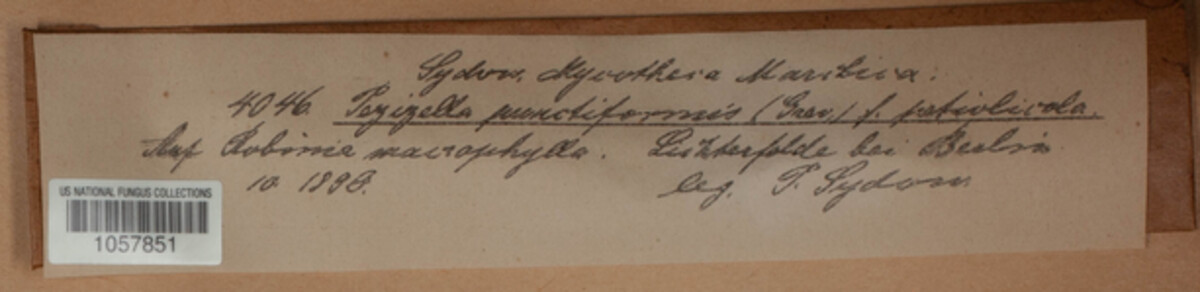 Sydow. Mycotheca Marchica.
4046. Pezizella punctiformis (Grev.) f. petiolicola.
Auf Robinia macrophylla. Lichterfelde bei Berlin
10 189
leg. P. Sydow
US NATIONAL FUNGUS COLLECTIONS
1057851